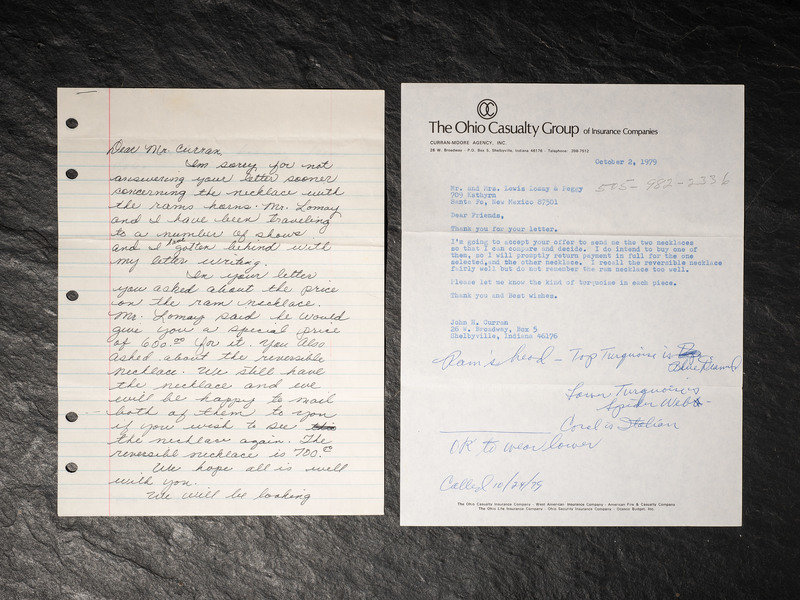 Dear Mr. Curran,
I'm sorry for not
answering your letter sooner
concerning the necklace with
the rams horns. Mr. Lomay
and I have been traveling
to a number of shows
and I had gotten behind with
my letter writing.
In your letter
you asked about the price
on the ram necklace.
Mr. Lomay said he would
give you a special price
of 600.00 for it. You also
asked about the reversible
necklace. We still have
the necklace and we
will be happy to mail
both of them to you
if you wish to see this
the necklace again. The
reversible necklace is 700.00
We hope all is well
with you.
We will be looking
The Ohio Casualty Group of Insurance Companies
CURRAN-MOORE AGENCY, INC.
26 W. Broadway - P.O. Box 5, Shelbyville, Indiana 46176 - Telephone: 398-7512
October 2, 1979
Mr. and Mrs. Lewis Lomay & Peggy
709 Kathyrn
Santa Fe, New Mexico 87501
505-982-2336
Dear Friends,
Thank you for your letter.
I'm going to accept your offer to send me the two necklaces
so that I can compare and decide. I do intend to buy one of
them, so I will promptly return payment in full for the one
selected, and the other necklace. I recall the reversible necklace
fairly well but do not remember the ram necklace too well.
Please let me know the kind of turquoise in each piece.
Thank you and Best wishes.
John H. Curran
26 W. Broadway, Box 5
Shelbyville, Indiana 46176
Ram's head - Top Turquoise is
Blue Diamond
Lower Turquoise is
Spider Web
Coral is Italian
OK to wear lower
Called 10/24/79
The Ohio Casualty Insurance Company · West American Insurance Company · American Fire & Casualty Company
The Ohio Life Insurance Company · Ohio Security Insurance Company · Ocasco Budget, Inc.